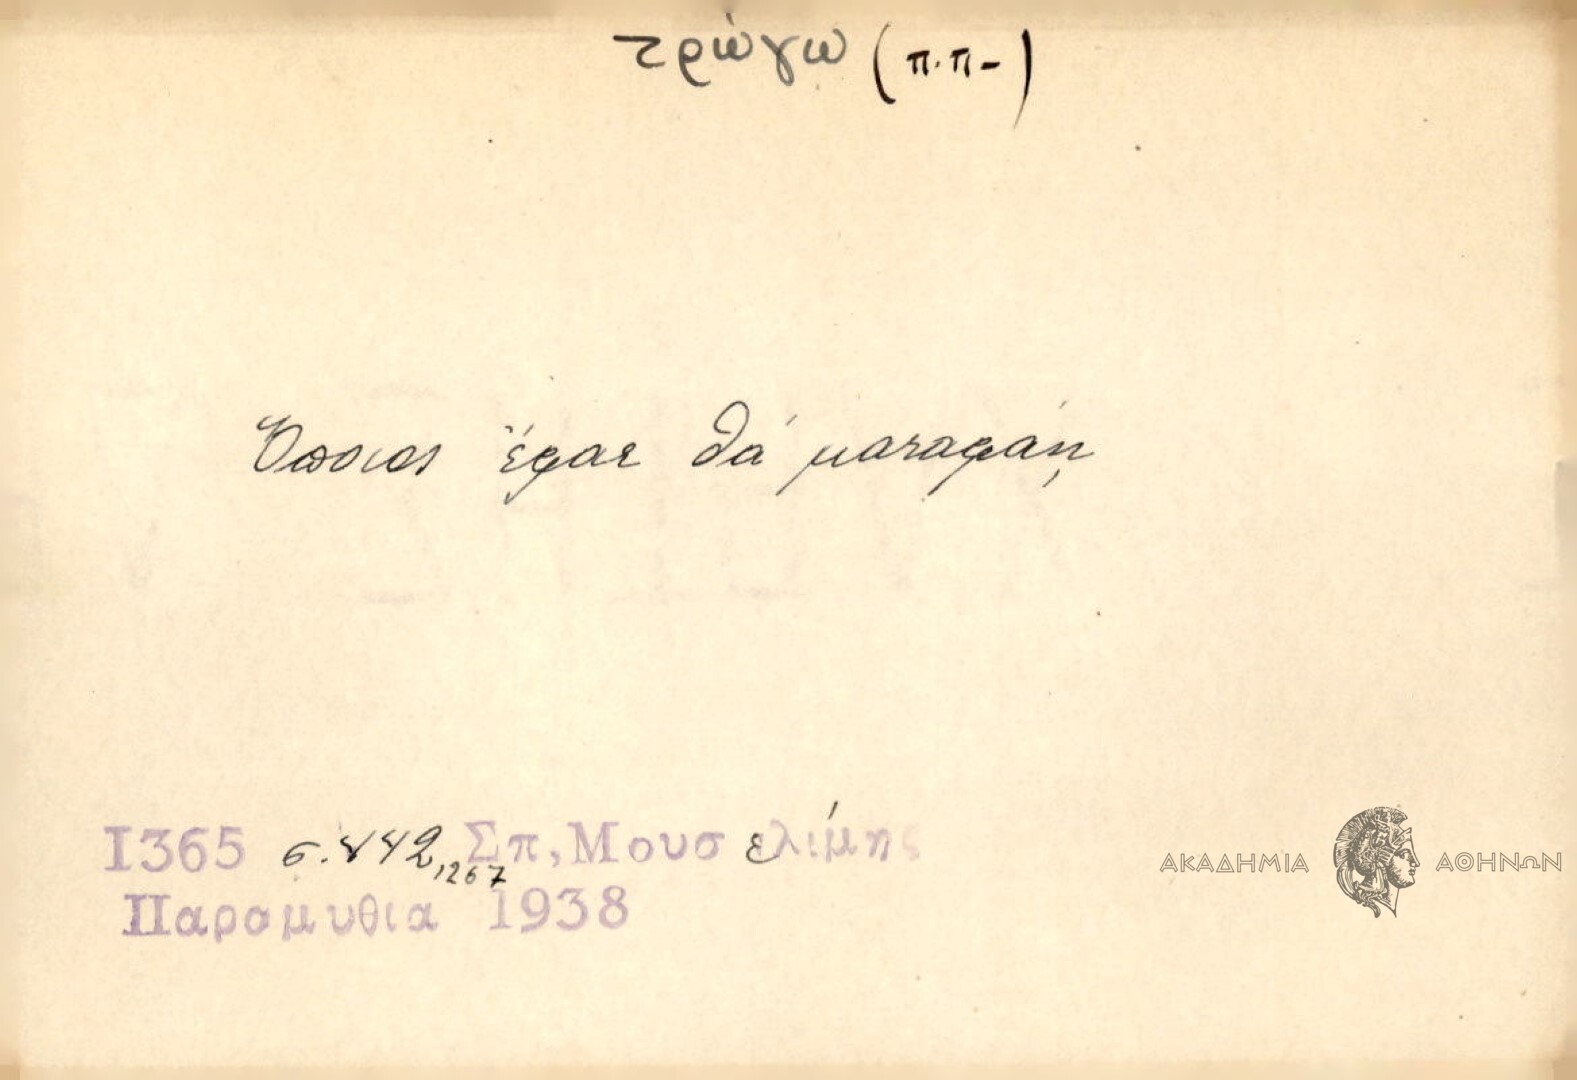 τρώγω (π.π-)
Ὅποιος ἔφαε θά ματαφάῃ
I365 σ. 442, 1267 Σπ, Μουσελίμης
Παραμυθια 1938
ΑΚΑΔΗΜΙΑ ΑΘΗΝΩΝ